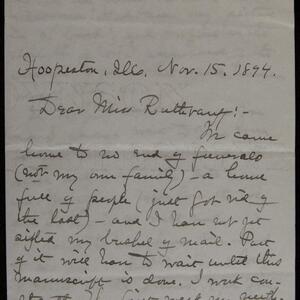 Hoopeston, Ills. Nov. 15, 1894.
Dear Miss Ruthrauf:-
I came
home to no end of funerals
(not my own family) - a house
full of people (just got rid of
the last) - and I have not yet
sifted my bushel of mail. Part
of it will have to wait until this
manuscript is done. I work con-